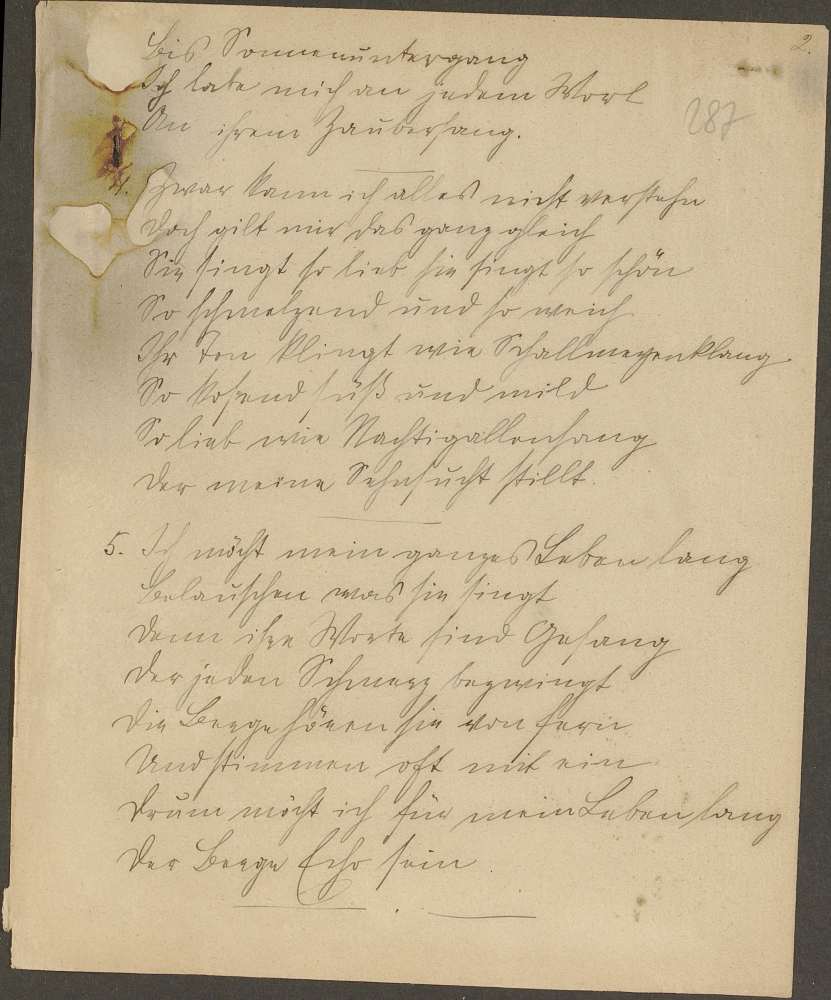 2.
Bis Sonnenuntergang
Ich labe mich an jedem Wort
287
An ihrem Zaubersang.
4. Zwar kann ich alles nicht verstehn
Doch gilt mir das ganz gleich
Sie singt so lieb sie singt so schön
So schmelzend und so weich
Ihr Ton klingt wie Schallmeyenklang
So kosend süß und mild
So lieb wie Nachtigallensang
Der meine Sehnsucht stillt.
5. Ich möcht mein ganzes Leben lang
Belauschen was sie singt
Denn ihre Worte sind Gesang
Der jeden Schmerz bezwingt
Die Berge hören sie von fern
Und stimmen oft mit ein
Drum möcht ich für mein Leben lang
Der Berge Echo sein